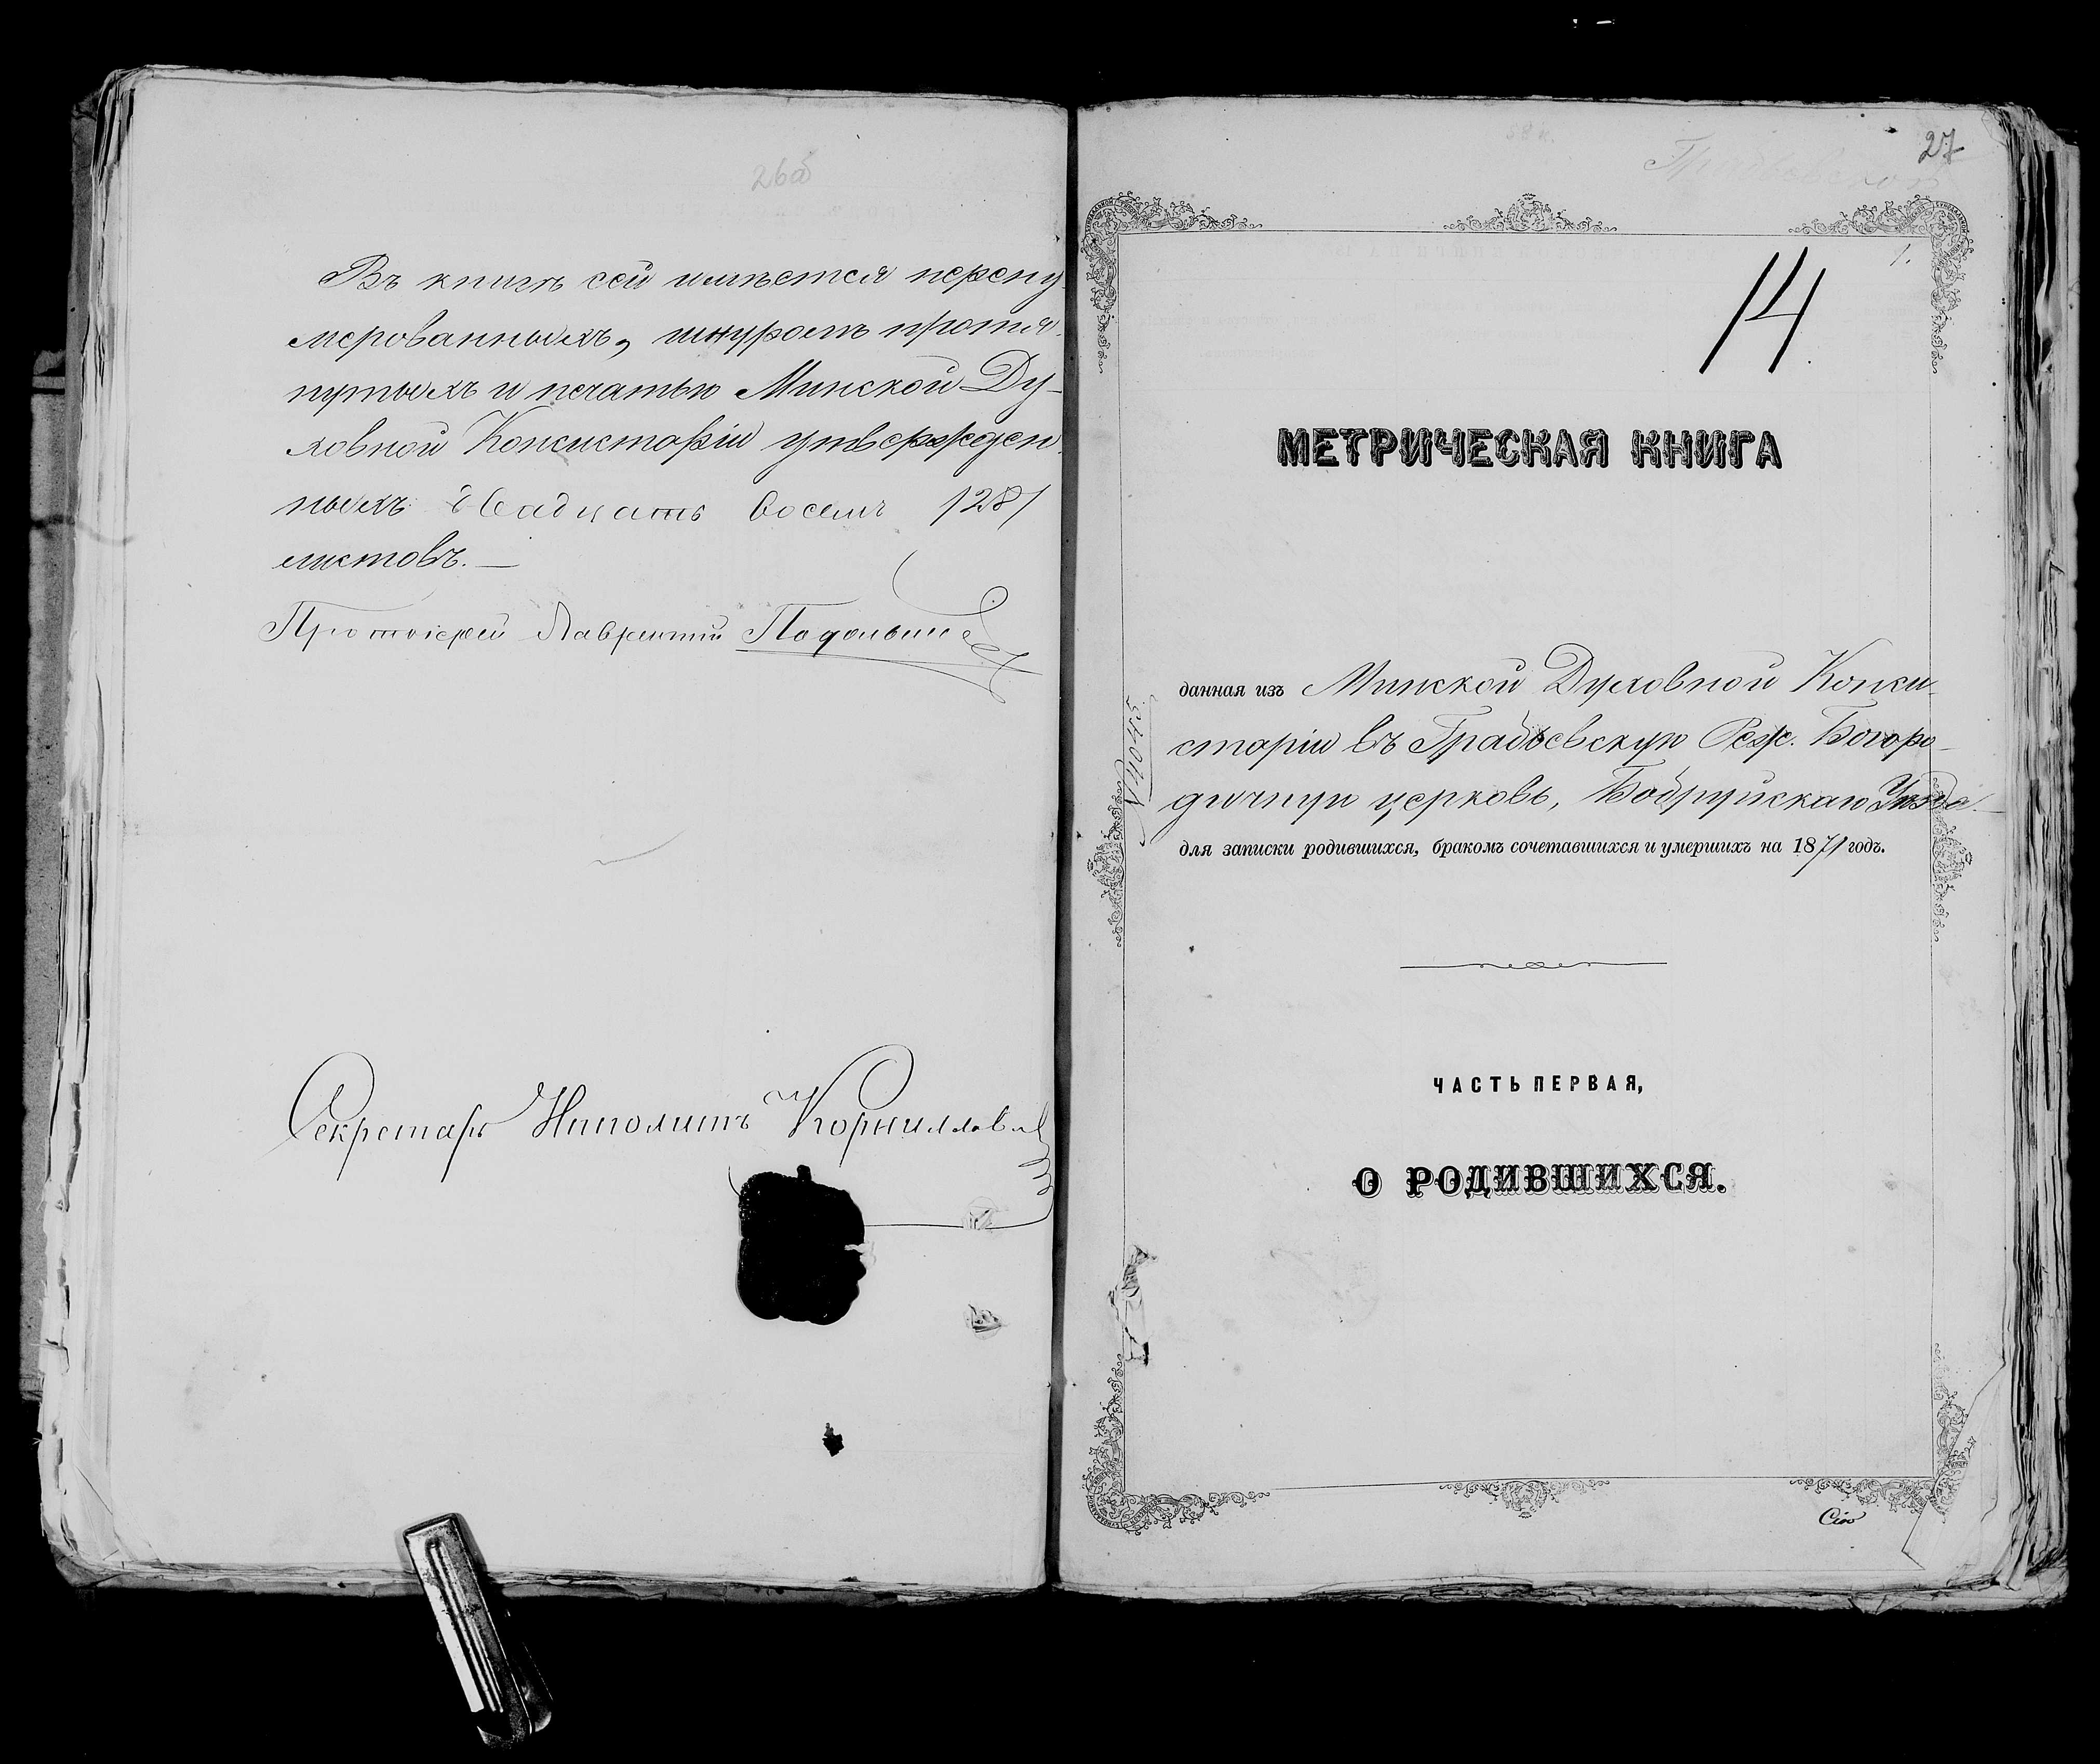 26об
Въ книгѣ сей имѣется перену-
мерованныхъ, шнуромъ протя-
нутыхъ и печатью Минской Ду-
ховной Консисторіи утвержден-
ныхъ двадцать восемь /28/
листовъ. —
Протоіерей Лаврентій
Секретарь Ипполитъ
27
1.
14
МЕТРИЧЕСКАЯ КНИГА
данная изъ Минской Духовной Конси-
сторіи въ Градьевскую Рож. Богоро-
дичную церковь, Бобруйскаго Уѣзда
для записки родившихся, бракомъ сочетавшихся и умершихъ на 1871 годъ.
N 4045
ЧАСТЬ ПЕРВАЯ,
О РОДИВШИХСЯ.